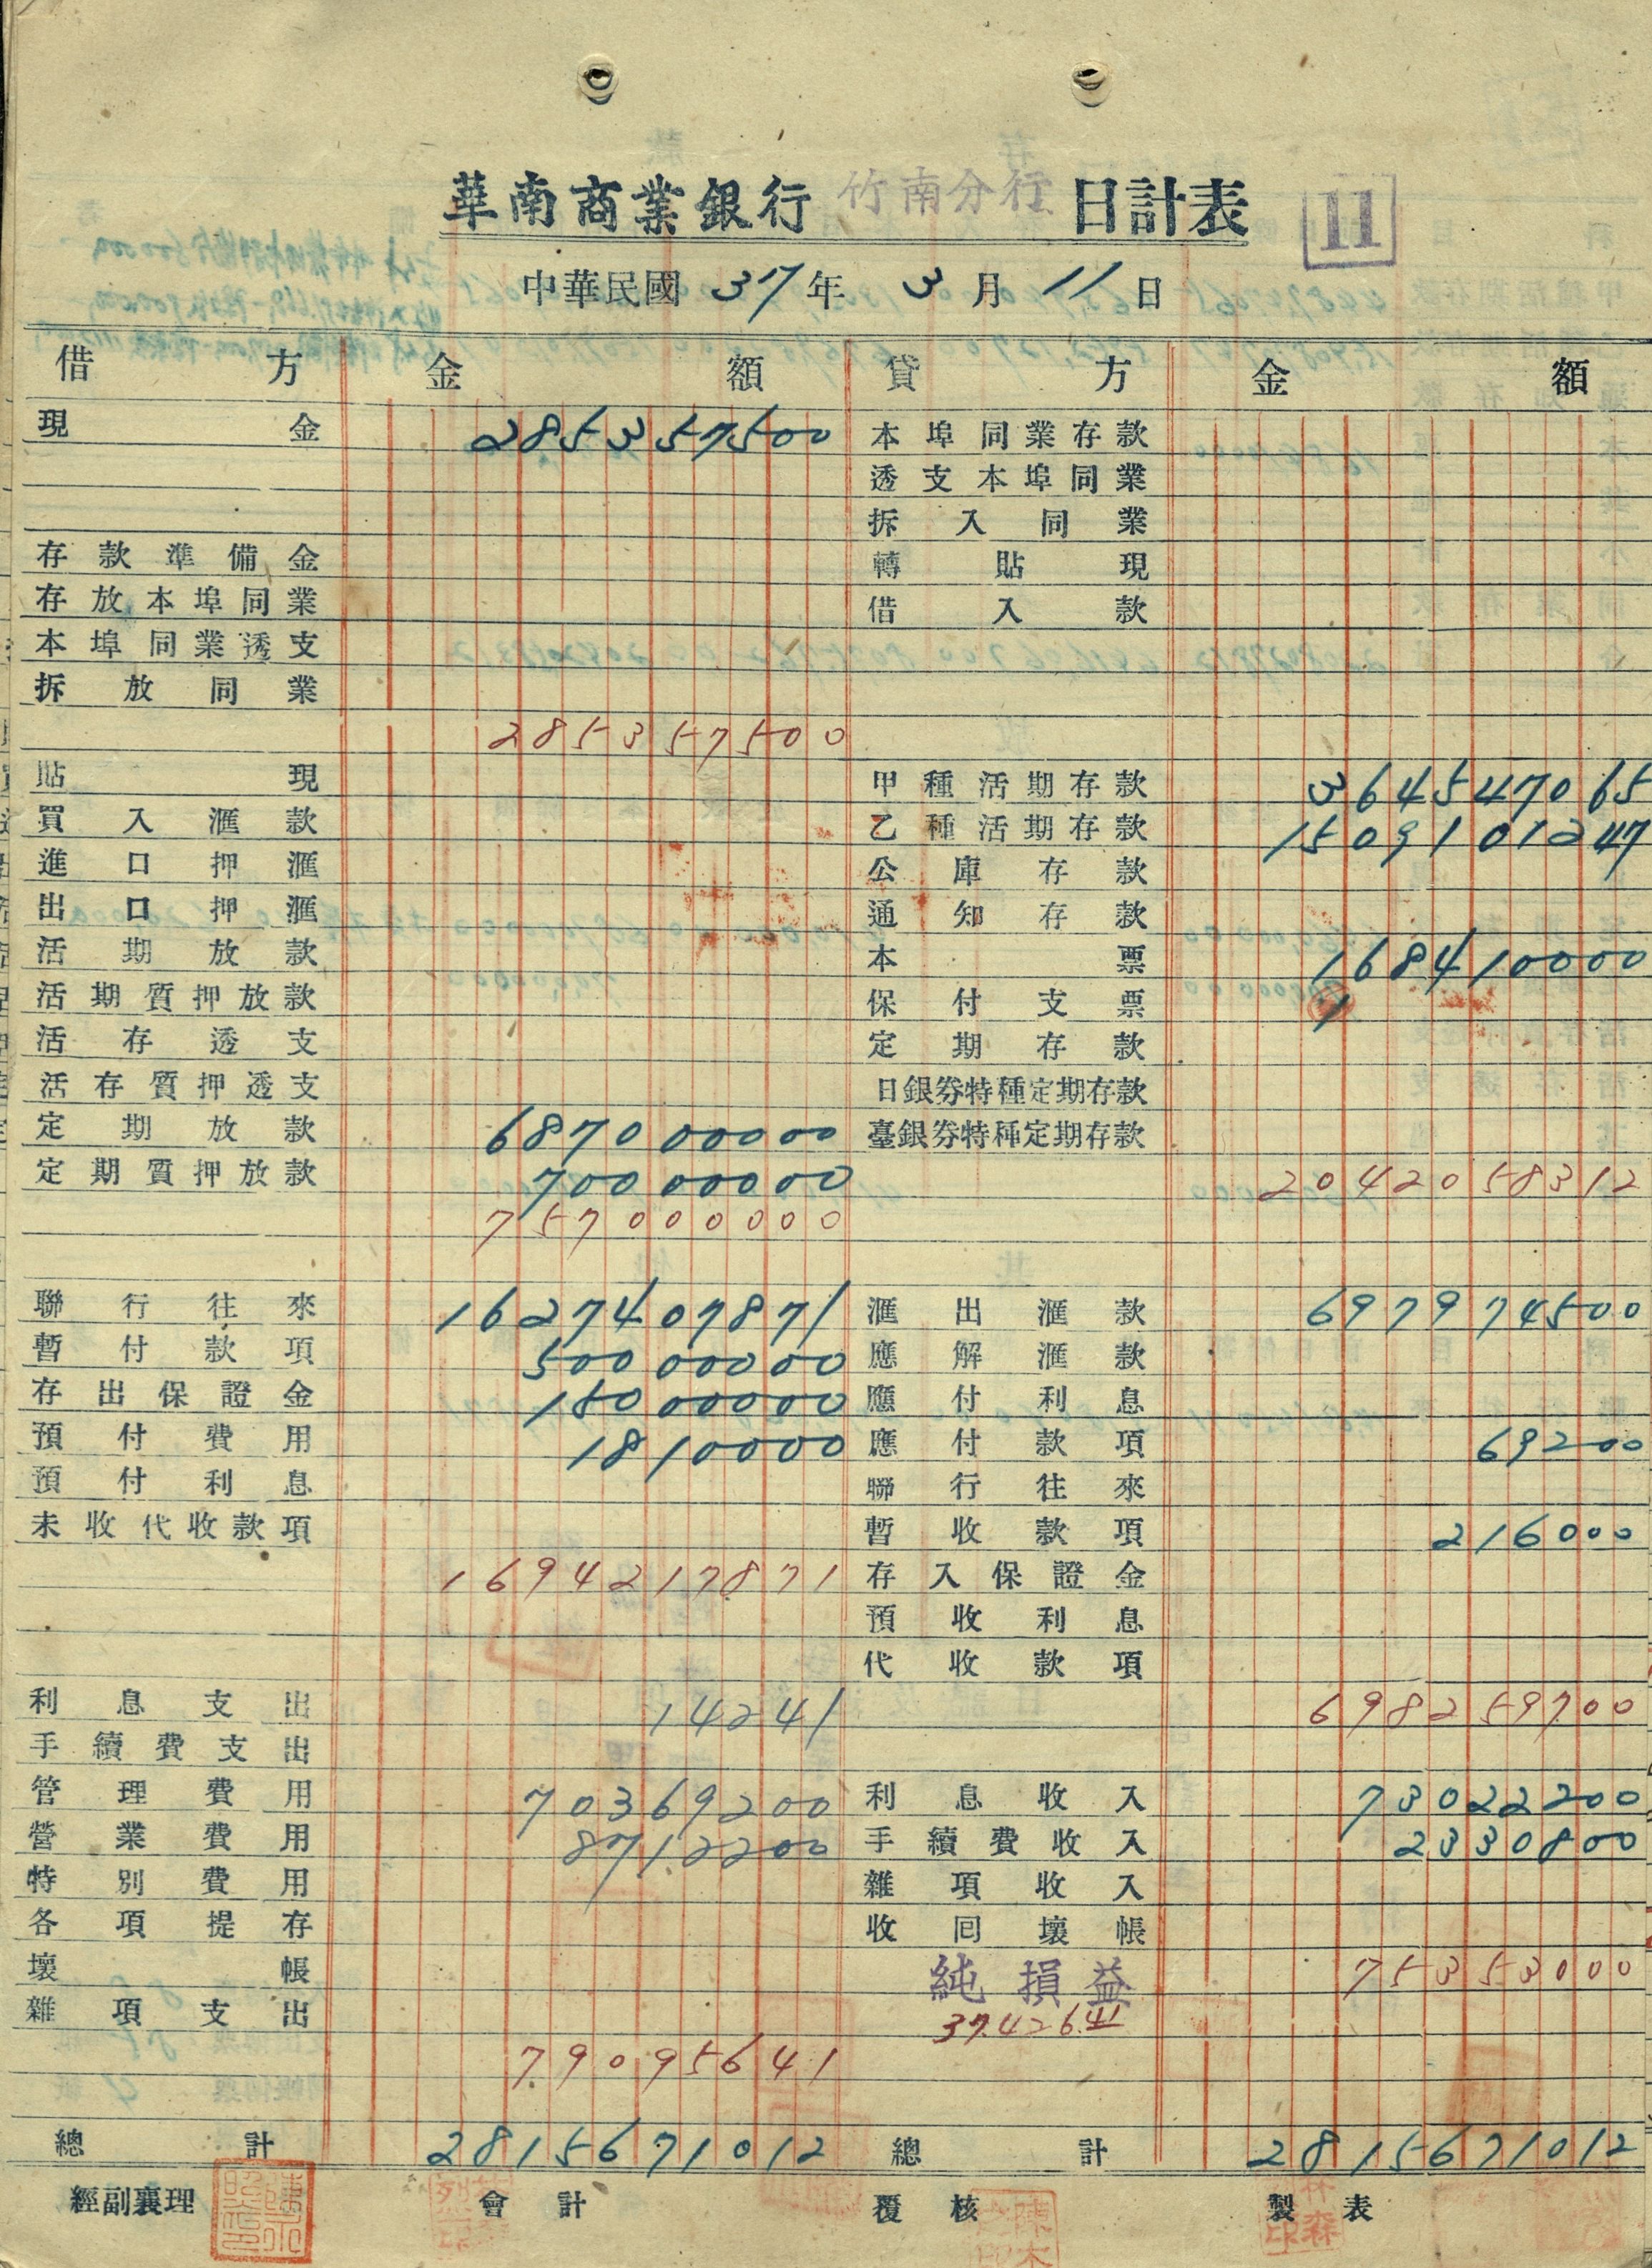 華南商業銀行 竹南分行 日計表 11
中華民國 37 年 3 月 11 日
借方 金額 貸方 金額
現金 285357500 本埠同業存款
透支本埠同業
拆入同業
存款準備金 轉貼現
存放本埠同業 借入款
本埠同業透支
拆放同業
285357500
貼現 甲種活期存款 364547065
買入滙款 乙種活期存款 1509101247
進口押滙 公庫存款
出口押滙 通知存款
活期放款 本票 168410000
活期質押放款 保付支票
活存透支 定期存款
活存質押透支 日銀券特種定期存款
定期放款 687000000 臺銀券特種定期存款
定期質押放款 70000000 2042058312
757000000
聯行往來 1627407871 滙出滙款 697974500
暫付款項 50000000 應解滙款
存出保證金 15000000 應付利息
預付費用 1810000 應付款項 69200
預付利息 聯行往來
未收代收款項 暫收款項 216000
1694217871 存入保證金
預收利息
代收款項
利息支出 14241 698259700
手續費支出
管理費用 70369200 利息收入 73022200
營業費用 8712200 手續費收入 2330800
特別費用 雜項收入
各項提存 收回壞帳
壞帳 純損益 75353000
雜項支出 37.426.41
79095641
總計 2815671012 總計 2815671012
經副襄理 會計 覆核 製表